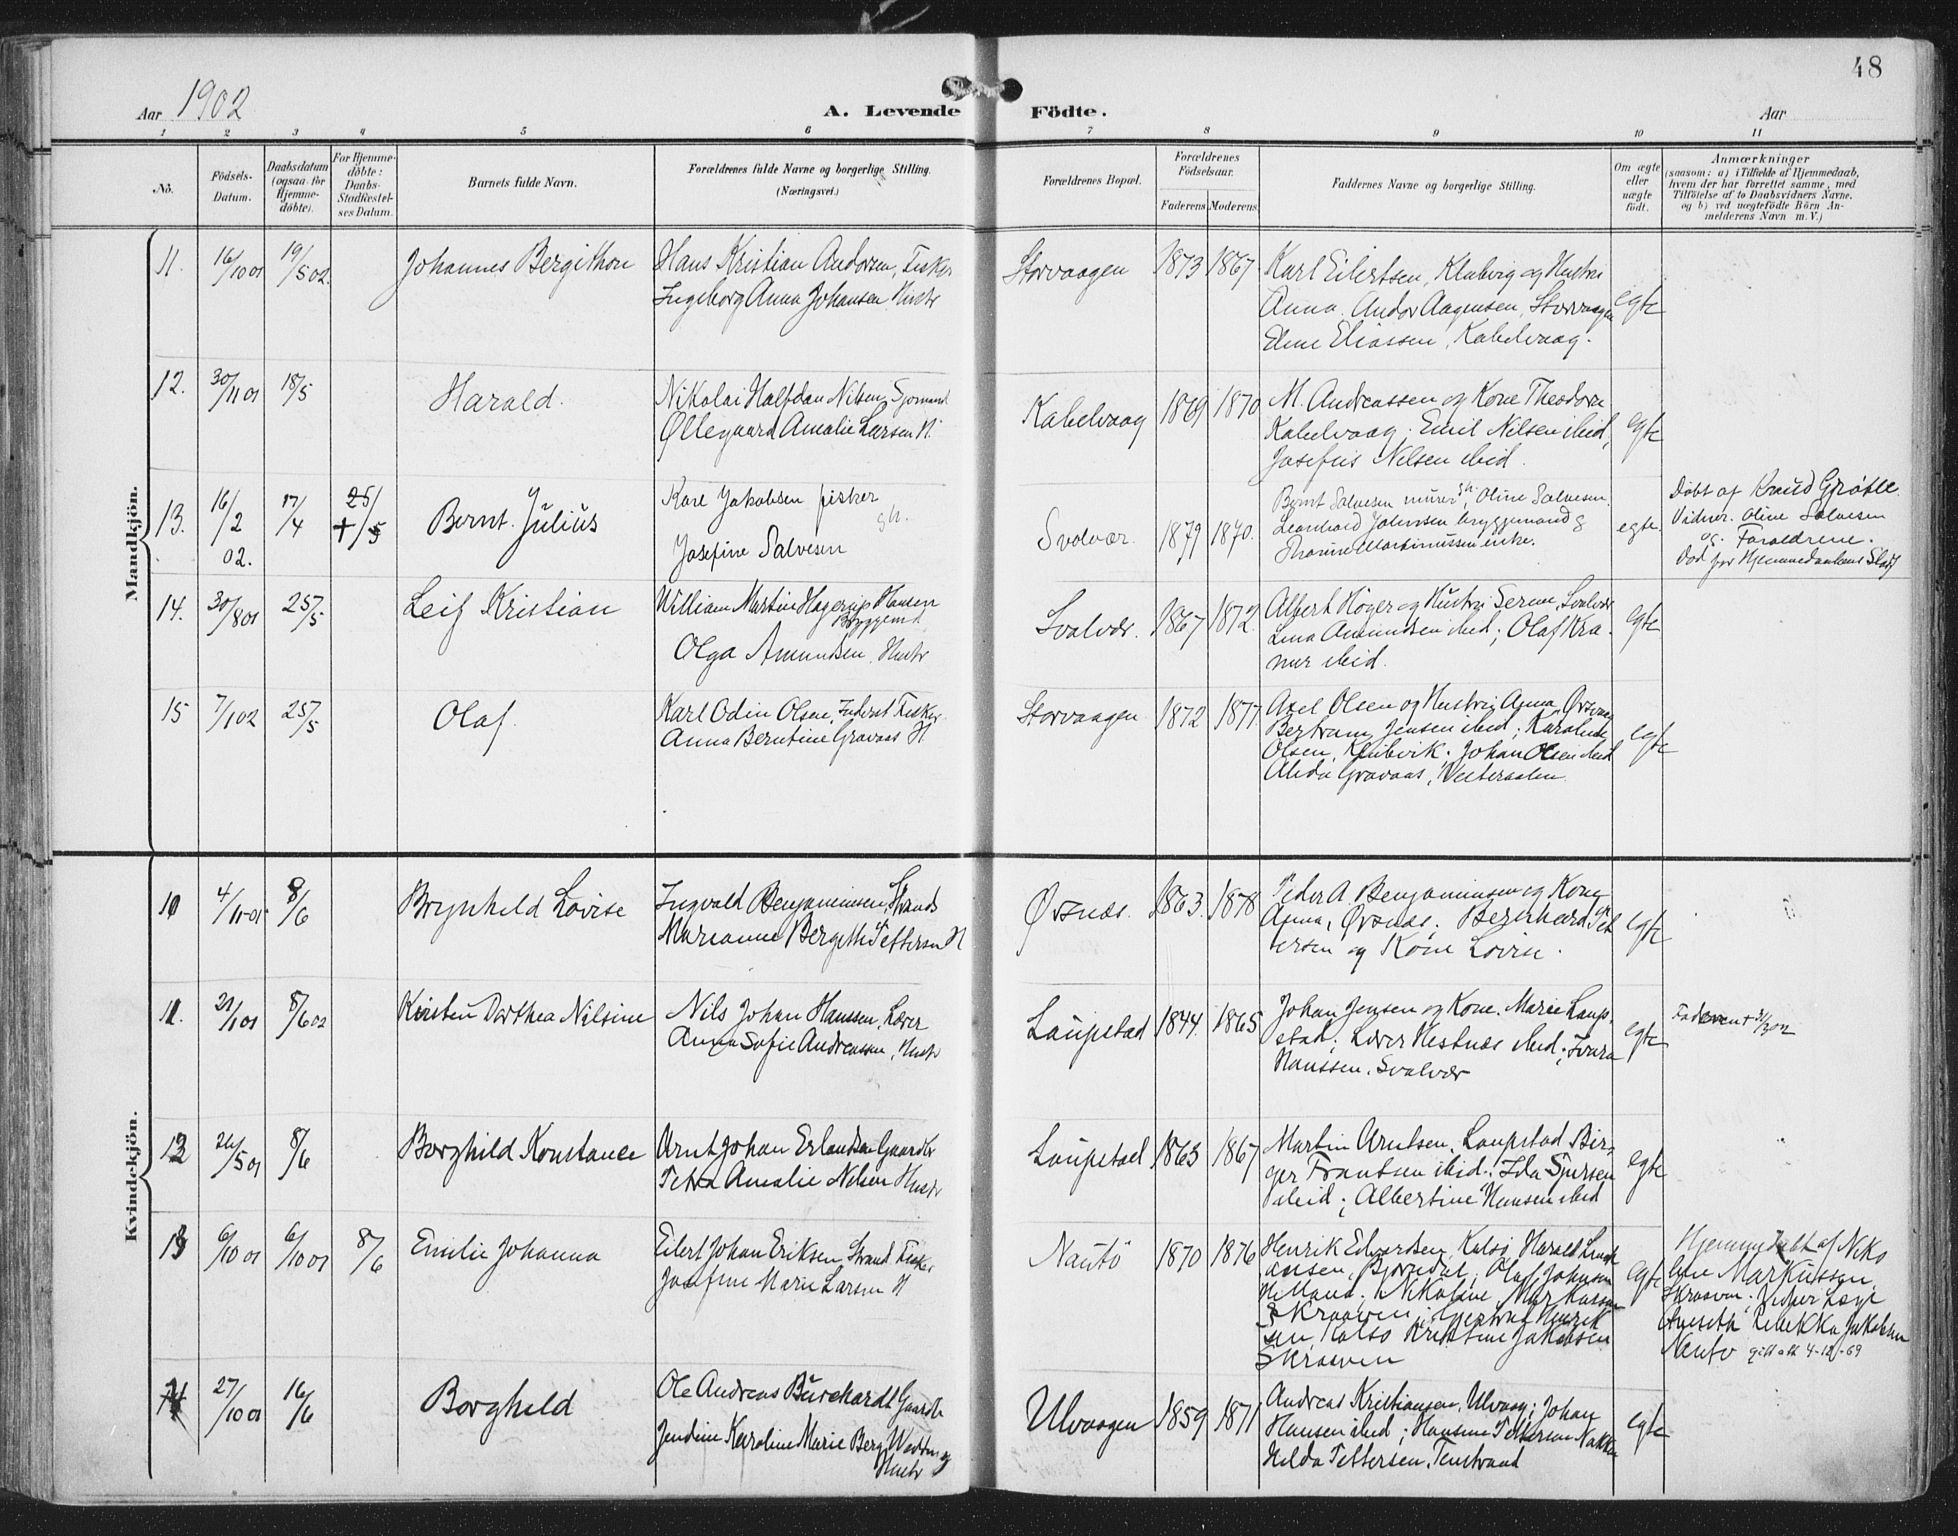 48
Aar 1902
A. Levende Födte.
Aar
1 2 3 4 5 6 7 8 9 10 11
No.
Födsels-Datum.
Daabsdatum (ogsaa for Hjemme-döbte).
For Hjemme-döbte: Daabs-Stadfestel-ses Datum.
Barnets fulde Navn.
Forældrenes fulde Navne og borgerlige Stilling.
(Næringsvei.)
Forældrenes Bopæl.
Forældrenes Födselsaar.
Faderens Moderens
Faddernes Navne og borgerlige Stilling.
Om ægte eller uægte födt.
Anmærkninger
(saasom: a) i Tilfælde af Hjemmedaab,
hvem der har forrettet samme, med
Tilföielse af to Daabsvidners Navne,
og b) ved uægtefödte Börn An-
melderens Navn m. V.)
Mandkjön.
11. 16/10 01 19/5 02. Johannes Bergithon
Hans Kristian Andorsen, Fisker
Ingeborg Anna Johansen Hustr
Storvaagen 1873 1867
Karl Eilertsen, Klubvig og Hustru
Anna. Andor Aagensen, Storvaagen
Eline Eliassen, Kabelvaag.
egte
12. 30/11 01 18/5 Harald.
Nikolai Halfdan Nilsen, Sjømand
Øllegaard Amalie Larsen H.
Kabelvaag 1869 1870
M. Andreassen og Kone Theodora
Kabelvaag; Emil Nilsen ibid,
Josefus Nelsen ibid.
egte
13. 16/2 02. 17/4 25/5 + Bernt Julius
Kare Jakobsen fisker
gh.
Josefine Salvesen
Svolvær. 1879 1870.
Bernt Salvesen murer gh, Oline Salvesen
Leonhard Johnsen bryggemand &
Martinussen enke.
egte.
Døbt af Knud Grøtle
Vidner. Oline Salvesen
og Forældrene.
Død før Hjemmedaabens Stadf
14. 30/8 01 25/5 Leif Kristian
William Martin Hagerup Hansen
Bryggemd
Olga Amundsen, Hustr
Svolvær. 1867 1872.
Albert Höger og Hustru Serine, Svolvær
Lina Amundsen ibid; Olaf Kra-
mer ibid.
egte
15 7/1 02 25/5 Olaf.
Karl Odin Olsen, Inderst Fisker
Anna Berntine Gravaas H
Storvaagen 1872 1877
Axel Olsen og Hustru Anna, Örsvaag
Bertram Jensen ibid; Karoline
Olsen, Klubvik. Johan Olsen ibid
Alida Gravaas, Vesteraalen
egte
Kvindekjön.
10 4/11 01 8/6 Brynhild Lovise
Ingvald Benjaminsen, Strands
Marianne Bergithe Pettersen H
Ørsnæs. 1863. 1878
Peder A. Benjaminsen og Kone
Anna, Ørsnæs; Bernhard Pet
tersen og Kone Lovise.
egte
11. 21/1 01 8/6 02 Kirsten Dorthea Nilsine
Nils Johan Hanssen, Lærer
Anna Sofie Andreassen, Hustr
Laupstad 1844. 1865
Johan Jensen og Kone Marie Laup-
stad; Lærer Hestnæs ibid;
Hanssen, Svolvær
egte
Faderen + 31/3 02
12 26/5 01 8/6 Borghild Konstance
Arnt Johan Erlandsen Gaardbr
Petra Amalie Nilsen Hustr
Laupstad 1863 1867
Martin Arntsen, Laupstad Bir-
ger Frantsen ibid.; Ida Sjursen
ibid; Albertine Hansen ibid
egte
13 6/10 01 6/10 01 8/6 Emilie Johanna
Eilert Johan Eriksen Strands Fisker
Josefine Marie Larsen H
Nautö 1870 1876
Henrik Edvardsen, Kalsø Harald
Bjørnedal; Olaf Johnsen
Nikoline Markussen
Skraaven; Henrik
sen Kalsø Kristine Jakobsen
Skraaven
egte
Hjemmedøbt af Niko
line Markussen,
Skraaven; Vidner
Rebekka Jakobsen
Nautø gift att 4-12-69
14 27/10 01 16/6 Borghild
Ole Andreas Burchardt Gaardbr
Jendine Karoline Marie Berg Wadtm og
Hustr
Ulvaagen 1859 1871
Andreas Kristiansen, Ulvaag; Johan
Hansen ibid; Hansine Pettersen
Hilda Pettersen, Finstrand
egte